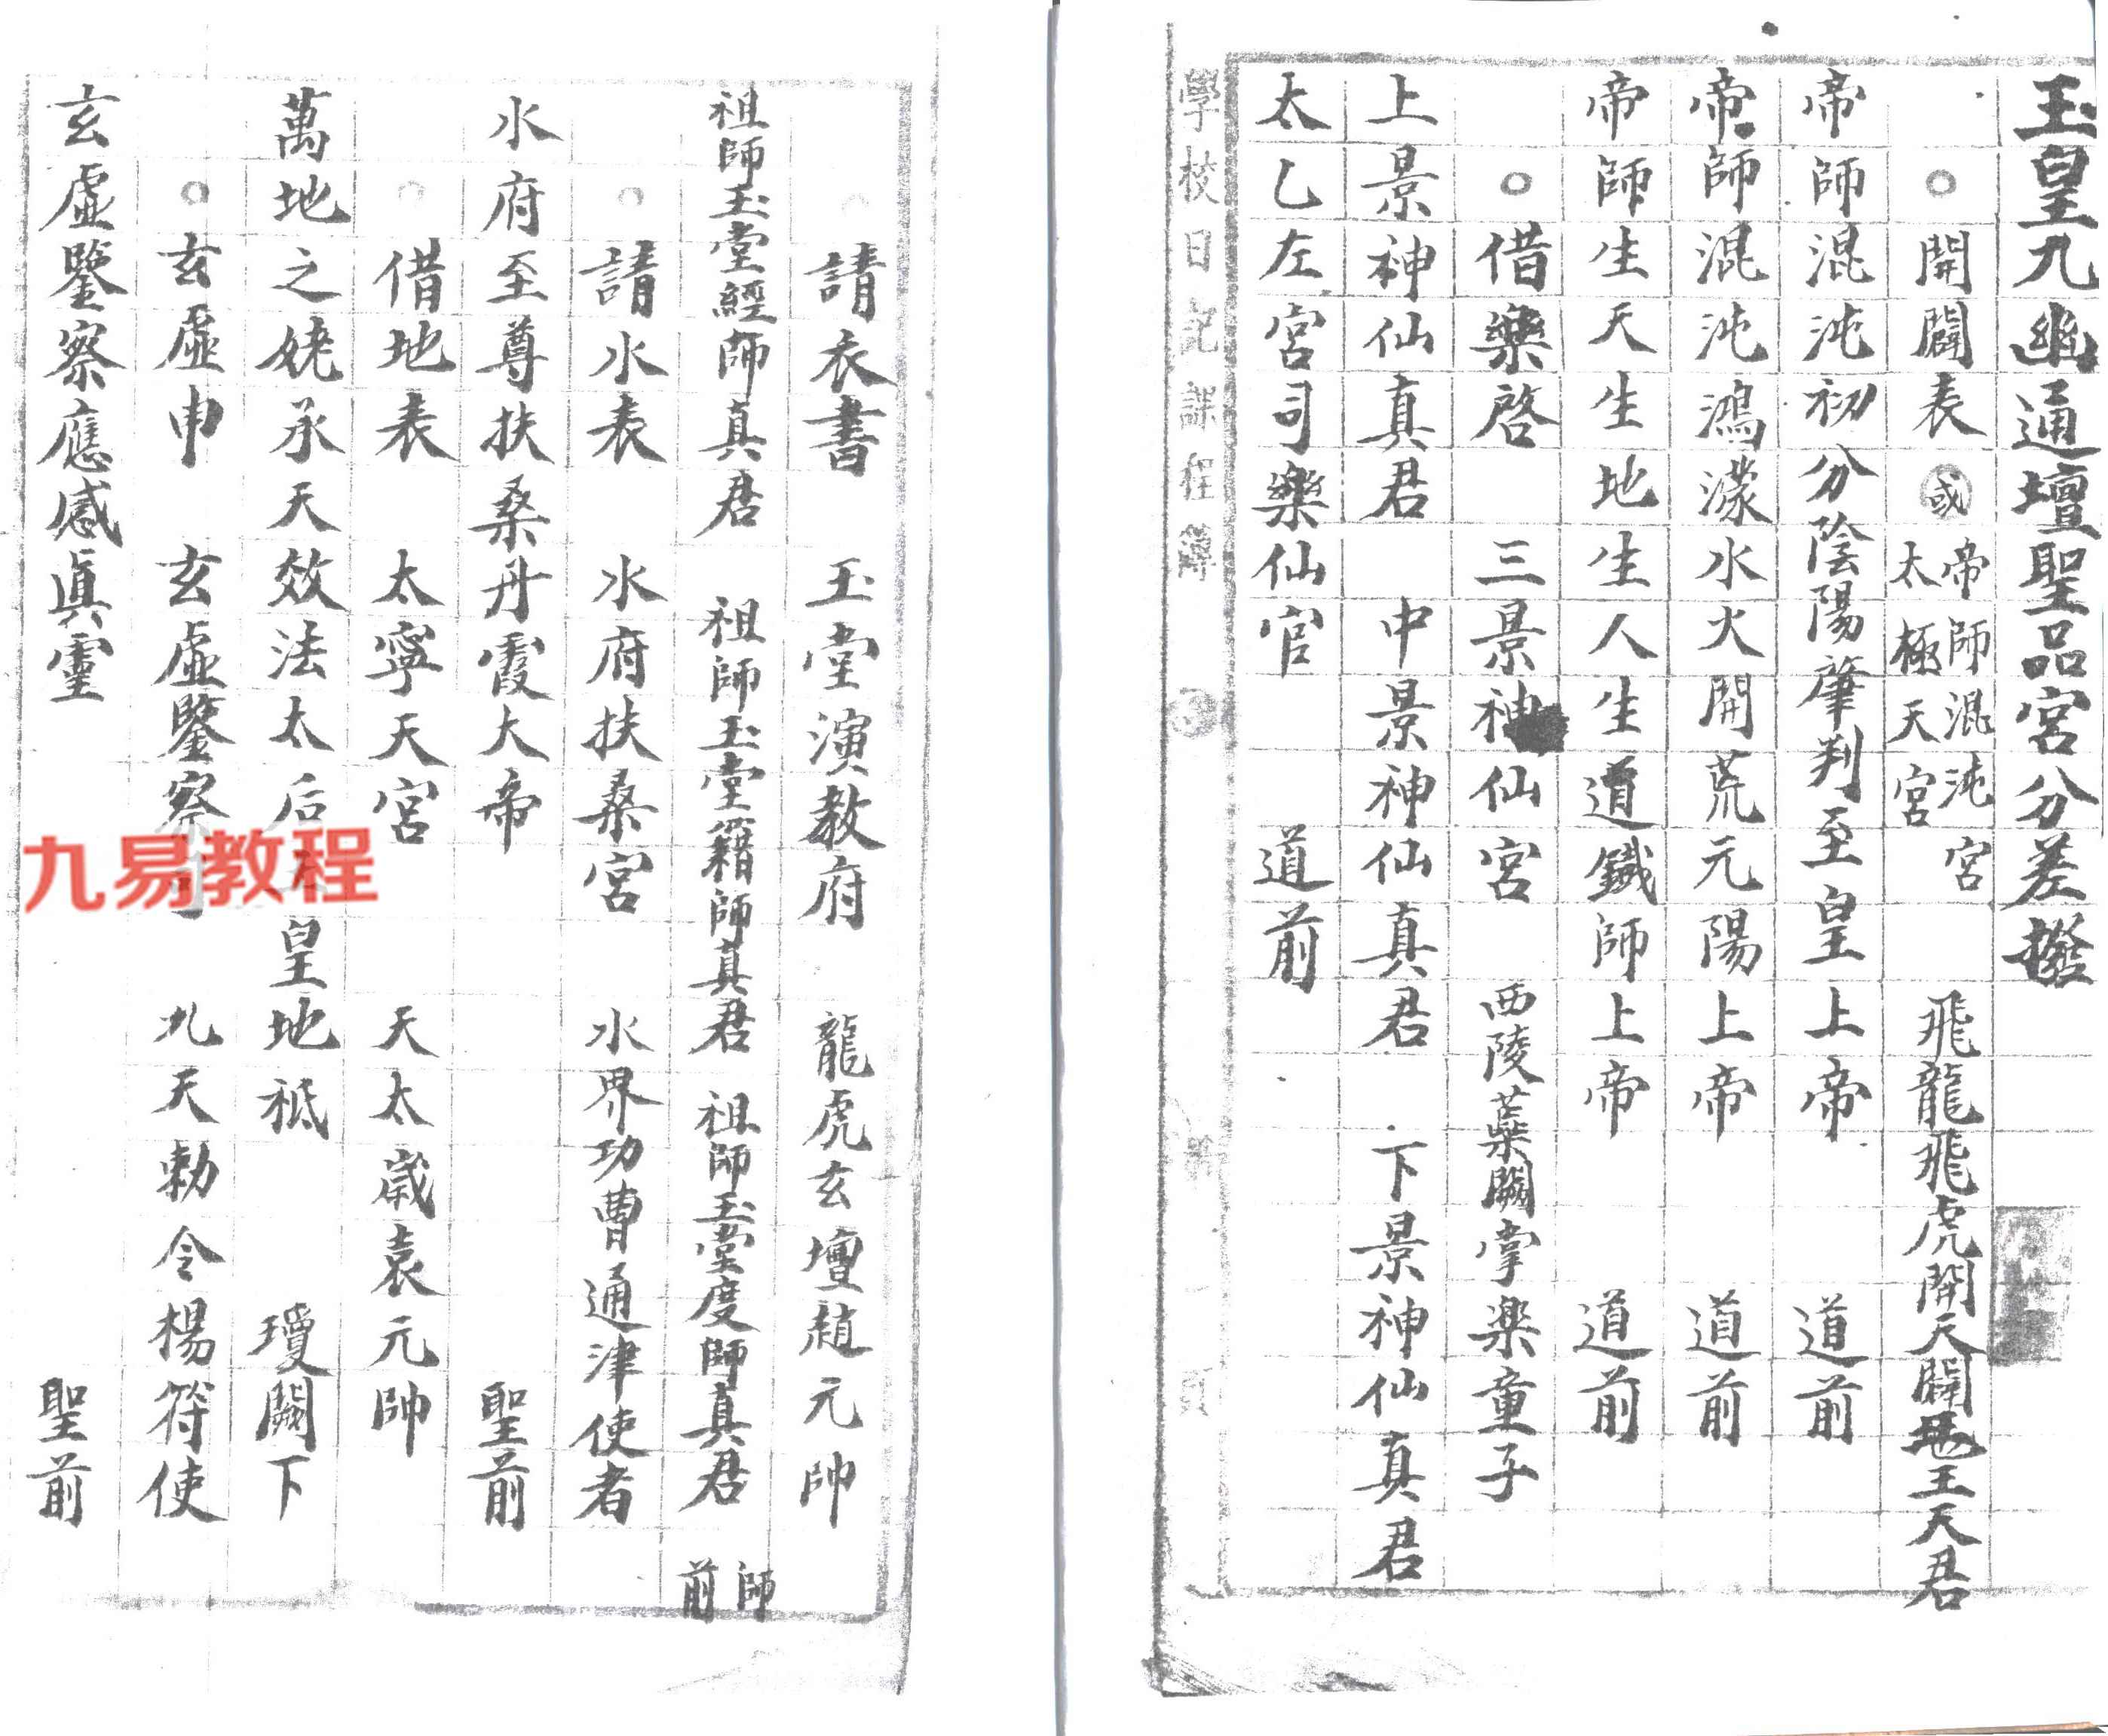 玉皇九幽通壇聖品宮分差撥
○開闢表 或 帝師混沌宮 太極天宮 飛龍飛虎開天闢地王天君
帝師混沌初分陰陽肇判至皇上帝 道前
帝師混沌鴻濛水火開荒元陽上帝 道前
帝師生天生地生人生道鐵師上帝 道前
○借樂啓 三景神仙宮 西陵蕋闕掌樂童子
上景神仙真君 中景神仙真君 下景神仙真君
太乙左宮司樂仙官 道前
學校日記課程簿
○請衣書 玉堂演教府 龍虎玄壇趙元帥
祖師玉堂經師真君 祖師玉堂籍師真君 祖師玉堂度師真君 師前
○請水表 水府扶桑宮 水界功曹通津使者
水府至尊扶桑丹霞大帝 聖前
○借地表 太寧天宮 天太歲袁元帥
萬地之姥承天效法太后 皇地祗 瓊闕下
○玄虛申 玄虛鑒察司 九天勅令楊符使
玄虛鑒察應感真靈 聖前
九易教程